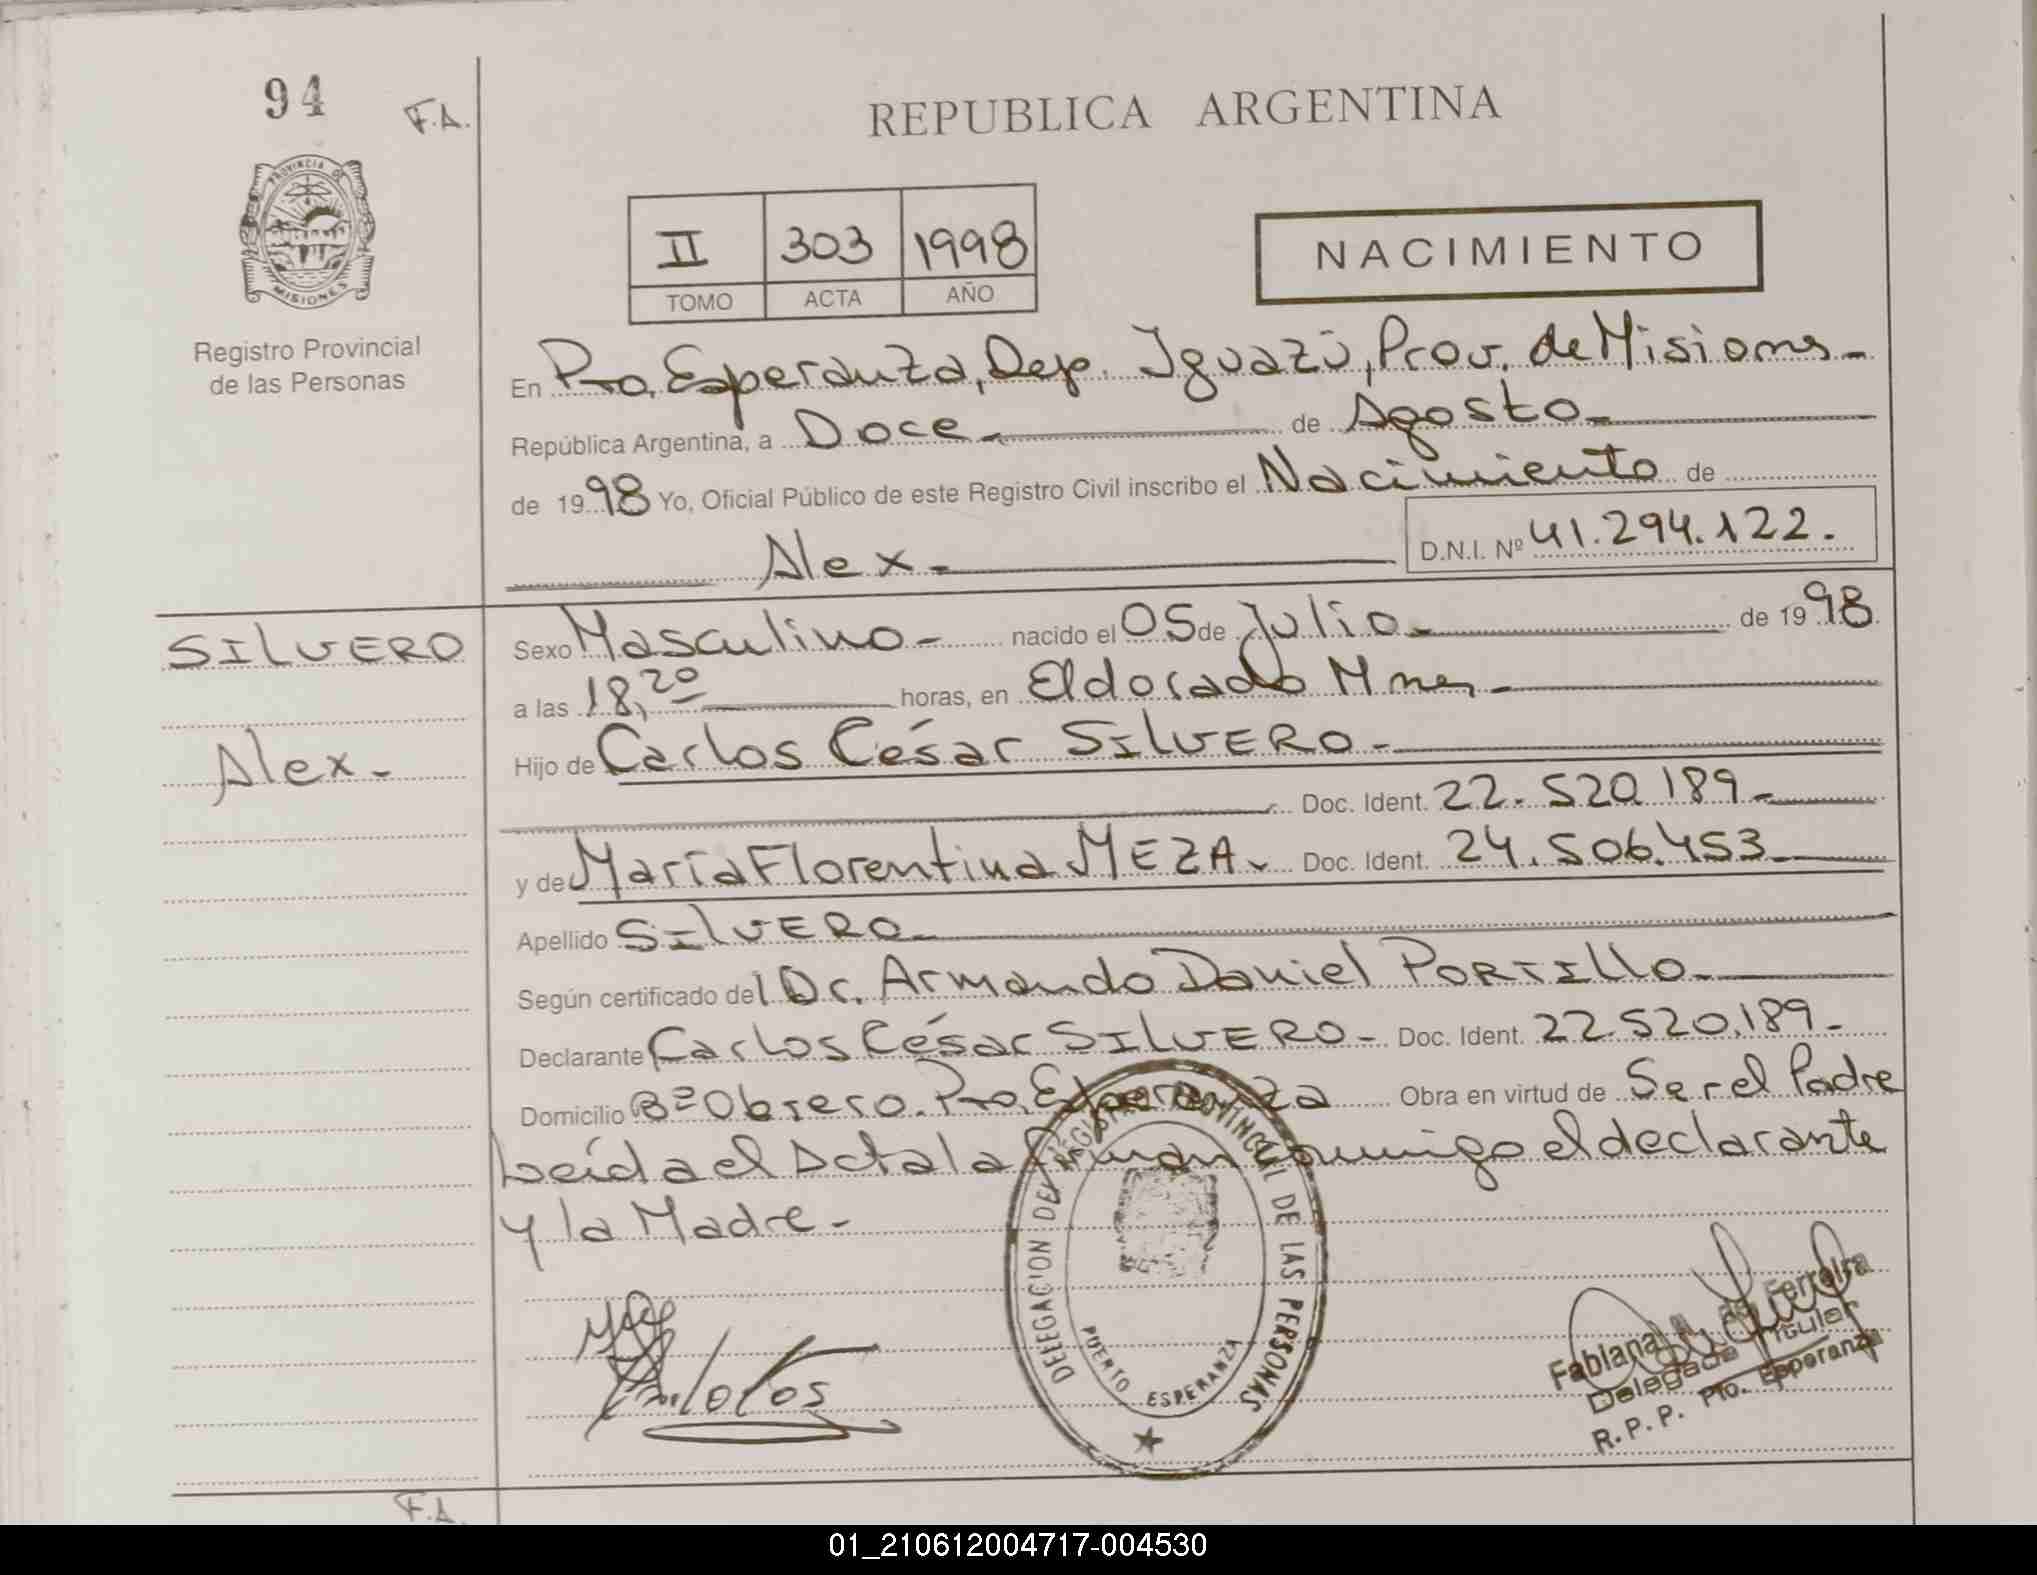 94
F.A.
PROVINCIA DE
MISIONES
Registro Provincial
de las Personas
REPUBLICA ARGENTINA
II 303 1998
TOMO ACTA AÑO
NACIMIENTO
En Pto. Esperanza, Dep. Iguazú, Prov. de Misiones-
República Argentina, a Doce- de Agosto-
de 1998 Yo, Oficial Público de este Registro Civil inscribo el Nacimiento de
Alex-
D.N.I. Nº 41.294.122.
SILVERO
Alex-
Sexo Masculino- nacido el 05 de Julio- de 1998
a las 18,20 horas, en Eldorado Mnes-
Hijo de Carlos César SILVERO-
Doc. Ident. 22.520.189-
y de María Florentina MEZA- Doc. Ident. 24.506.453-
Apellido SILVERO-
Según certificado del Dr. Armando Daniel PORTILLO-
Declarante Carlos César SILVERO- Doc. Ident. 22.520.189-
Domicilio Bº Obrero. Pto. Esperanza Obra en virtud de Ser el Padre
Leída el Acta la firman conmigo el declarante
y la Madre-
DELEGACION DEL REGISTRO PROVINCIAL DE LAS PERSONAS
PUERTO ESPERANZA
Fabiana Ferreira
Delegada Titular
R.P.P. Pto. Esperanza
F.A.
01_210612004717-004530